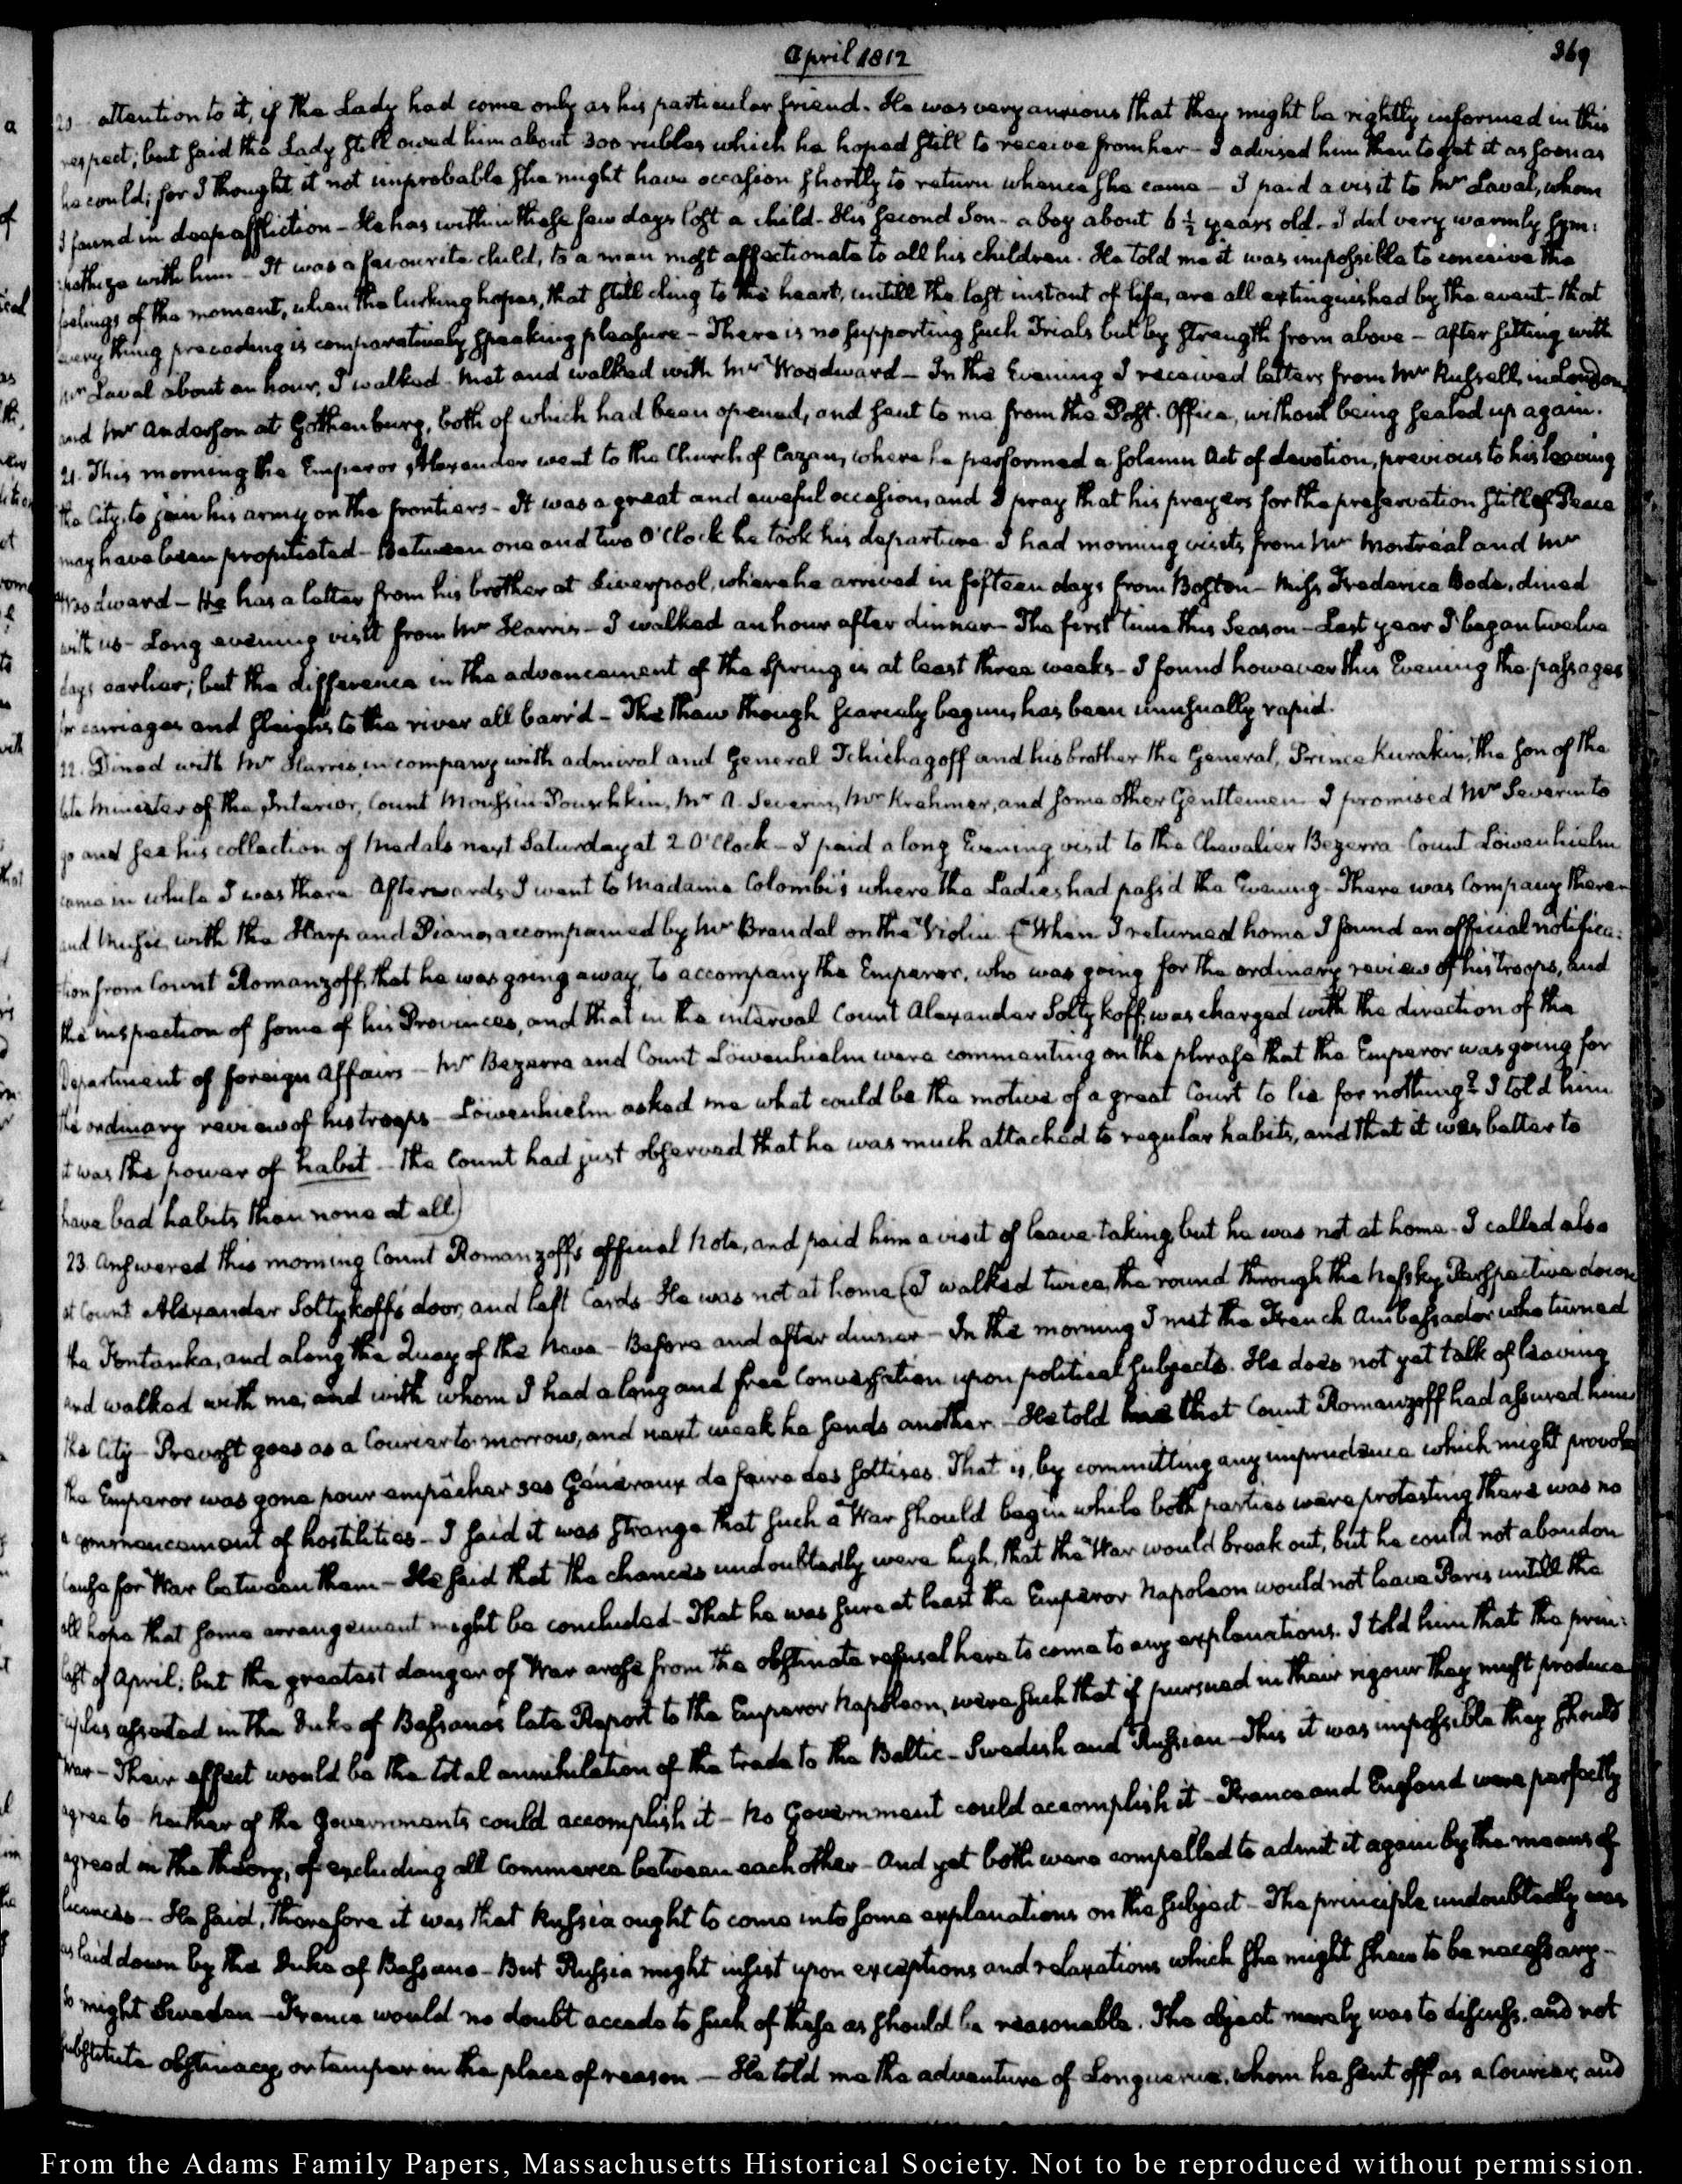 April 1812
369
20 attention to it, if the Lady had come only as his particular friend. He was very anxious that they might be rightly informed in this
respect; but said the Lady still owed him about 300 rubles which he hoped still to receive from her – I advised him then to get it as soon as
he could; for I thought it not improbable she might have occasion shortly to return whence she came – I paid a visit to Mr Laval, whom
I found in deep affliction – He has within these few days lost a child – His second Son – a boy about 6 ½ years old – I did very warmly sym:
pathize with him – It was a favourite child, to a man most affectionate to all his children. He told me it was impossible to conceive the
feelings of the moment, when the lurking hopes, that still cling to the heart, untill the last instant of life, are all extinguished by the event – that
every thing preceding is comparatively speaking pleasure – There is no supporting such Trials but by strength from above – After sitting with
Mr Laval about an hour, I walked – Met and walked with Mr Woodward – In the Evening I received letters from Mr Russell, in London,
and Mr Anderson at Gothenburg, both of which had been opened, and sent to me from the Post-Office, without being sealed up again.
21. This morning the Emperor Alexander went to the Church of Cazan, where he performed a solemn Act of devotion, previous to his leaving
the City, to join his army on the frontiers – It was a great and aweful occasion, and I pray that his prayers for the preservation still of Peace
may have been propitiated – Between one and two O'Clock he took his departure. I had morning visits from Mr Montréal and Mr
Woodward – He has a letter from his brother at Liverpool, where he arrived in fifteen days from Boston – Miss Frederica Bode, dined
with us – Long evening visit from Mr Harris – I walked an hour after dinner – The first time this Season – Last year I began twelve
days earlier; but the difference in the advancement of the Spring is at least three weeks – I found however this Evening the passages
for carriages and sleighs to the river all barr'd – The thaw though scarcely begun, has been unusually rapid.
22. Dined with Mr Harris, in company with admiral and General Tchichagoff and his brother the General, Prince Kurakin, the son of the
late Minister of the Interior, Count Moussin-Pouschkin, Mr A. Severin, Mr Krehmer, and some other Gentlemen. I promised Mr Severin to
go and see his collection of Medals next Saturday at 2 O'Clock – I paid a long Evening visit to the Chevalier Bezerra – Count Löwenhielm
came in while I was there. Afterwards I went to Madame Colombi's where the Ladies had pass'd the Evening – There was Company there –
and Music, with the Harp and Piano, accompanied by Mr Brandel on the Violin. (When I returned home I found an official notifica:
tion from Count Romanzoff, that he was going away, to accompany the Emperor, who was going for the ordinary review of his troops, and
the inspection of some of his Provinces, and that in the interval Count Alexander Soltykoff, was charged with the direction of the
Department of foreign Affairs – Mr Bezerra and Count Löwenhielm were commenting on the phrase that the Emperor was going for
the ordinary review of his troops – Löwenhielm asked me what could be the motive of a great Court to lie for nothing? I told him
it was the power of habit – The Count had just observed that he was much attached to regular habits, and that it was better to
have bad habits than none at all)
23. Answered this morning Count Romanzoff's official Note, and paid him a visit of leave-taking but he was not at home – I called also
at Count Alexander Soltykoff's door, and left Cards – He was not at home (I walked twice, the round through the Nefsky Perspective down
the Fontanka, and along the Quay of the Neva – Before and after dinner – In the morning I met the French Ambassador who turned
and walked with me, and with whom I had a long and free Conversation upon political subjects. He does not yet talk of leaving
the City – Prevost goes as a Courier to-morrow, and next week he sends another – He told me that Count Romanzoff had assured him
the Emperor was gone pour empêcher ses Généraux de faire des sottises. That is, by committing any imprudence which might provoke
a commencement of hostilities – I said it was strange that such a War should begin while both parties were protesting there was no
cause for War between them – He said that the chances undoubtedly were high, that the War would break out, but he could not abandon
all hope that some arrangement might be concluded – That he was sure at least the Emperor Napoleon would not leave Paris untill the
last of April; but the greatest danger of War arose from the obstinate refusal here to come to any explanations. I told him that the prin:
ciples asserted in the Duke of Bassano's late Report to the Emperor Napoleon, were such that if pursued in their rigour they must produce
War – Their effect would be the total annihilation of the trade to the Baltic – Swedish and Russian – This it was impossible they should
agree to – Neither of the Governments could accomplish it – No Government could accomplish it – France and England were perfectly
agreed in the theory, of excluding all Commerce between each other – And yet both were compelled to admit it again by the means of
licences – He said, therefore it was that Russia ought to come into some explanations on the subject – The principle undoubtedly was
as laid down by the Duke of Bassano – But Russia might insist upon exceptions and relaxations which she might shew to be necessary –
So might Sweden – France would no doubt accede to such of these as should be reasonable. The object merely was to discuss, and not
substitute obstinacy or temper in the place of reason – He told me the adventure of Longuerue, whom he sent off as a Courier, and
From the Adams Family Papers, Massachusetts Historical Society. Not to be reproduced without permission.